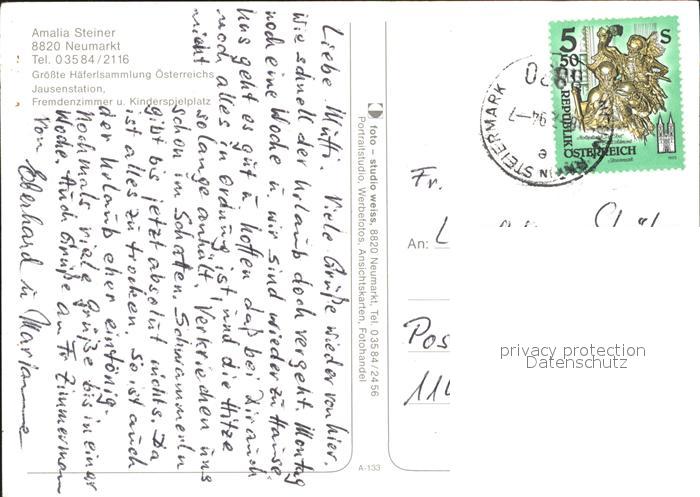 Amalia Steiner
8820 Neumarkt
Tel. 03584/2116
Größte Häferlsammlung Österreichs
Jausenstation,
Fremdenzimmer u. Kinderspielplatz
Liebe Mutti. Viele Grüße wieder von hier.
Wie schnell der Urlaub doch vergeht. Montag
noch eine Woche u. wir sind wieder zu Hause.
Uns geht es gut u. hoffen daß bei Dir auch
noch alles in Ordnung ist, und die Hitze
nicht so lange anhält. Verkriechen uns
schon im Schatten. Schwammerln
gibt bis jetzt absolut nichts. Da
ist alles zu trocken. So ist auch
der Urlaub eher eintönig.
Nochmals viele Grüße bis in einer
Woche. Auch Grüße an Fr. Zimmermann
Von Eberhard u. Marianne
foto – studio weiss, 8820 Neumarkt, Tel. 03584/2456
Portraitstudio, Werbefotos, Ansichtskarten, Fotohandel
A-133
5
50
S
REPUBLIK
ÖSTERREICH
8820
94-7
IN STEIERMARK
e
Fr.
An: L
Pos
114
privacy protection
Datenschutz